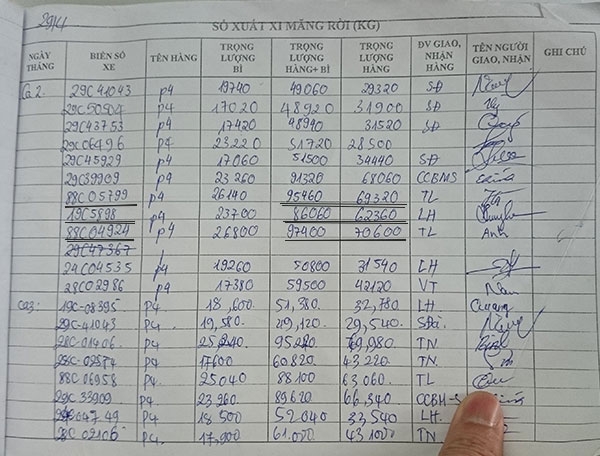 29/4
SỔ XUẤT XI MĂNG RỜI (KG)
NGÀY THÁNG BIỂN SỐ XE TÊN HÀNG TRỌNG LƯỢNG BÌ TRỌNG LƯỢNG HÀNG+ BÌ TRỌNG LƯỢNG HÀNG ĐV GIAO, NHẬN HÀNG TÊN NGƯỜI GIAO, NHẬN GHI CHÚ
Ca 2. 29C41043 P4 19740 49060 29320 SĐ
29C50904 P4 17020 48920 31900 SĐ
29C43753 P4 17420 48940 31520 SĐ
29C06496 P4 23220 51720 28500
29C45929 P4 17060 51500 34440 SĐ
29C39909 P4 23260 91320 68060 CCBMS
88C05799 P4 26140 95460 69320 TL
19C5898 P4 23700 86060 62360 LH
88C04924 P4 26800 97400 70600 TL Anh
29C47367
24C04535 P4 19260 50800 31540 LH
28C02986 P4 17380 59500 42120 VT Nam
Ca3: 19C-08395 P4 18,600. 51,380. 32,780 LH
29C-41043 P4 19,580. 49,120. 29,540.
28C-01406. P4 25,240 95220 69,980 TN
28C-02874 P4 17600 60820 43220 TN.
88C06958 P4 25040 88100 63060. TL
29C33909 P4 23,260 89620 66,340
04749 P4 18500 52040 33,540 LH.
28C02106 P4. 17,900 61.000 43100 TN